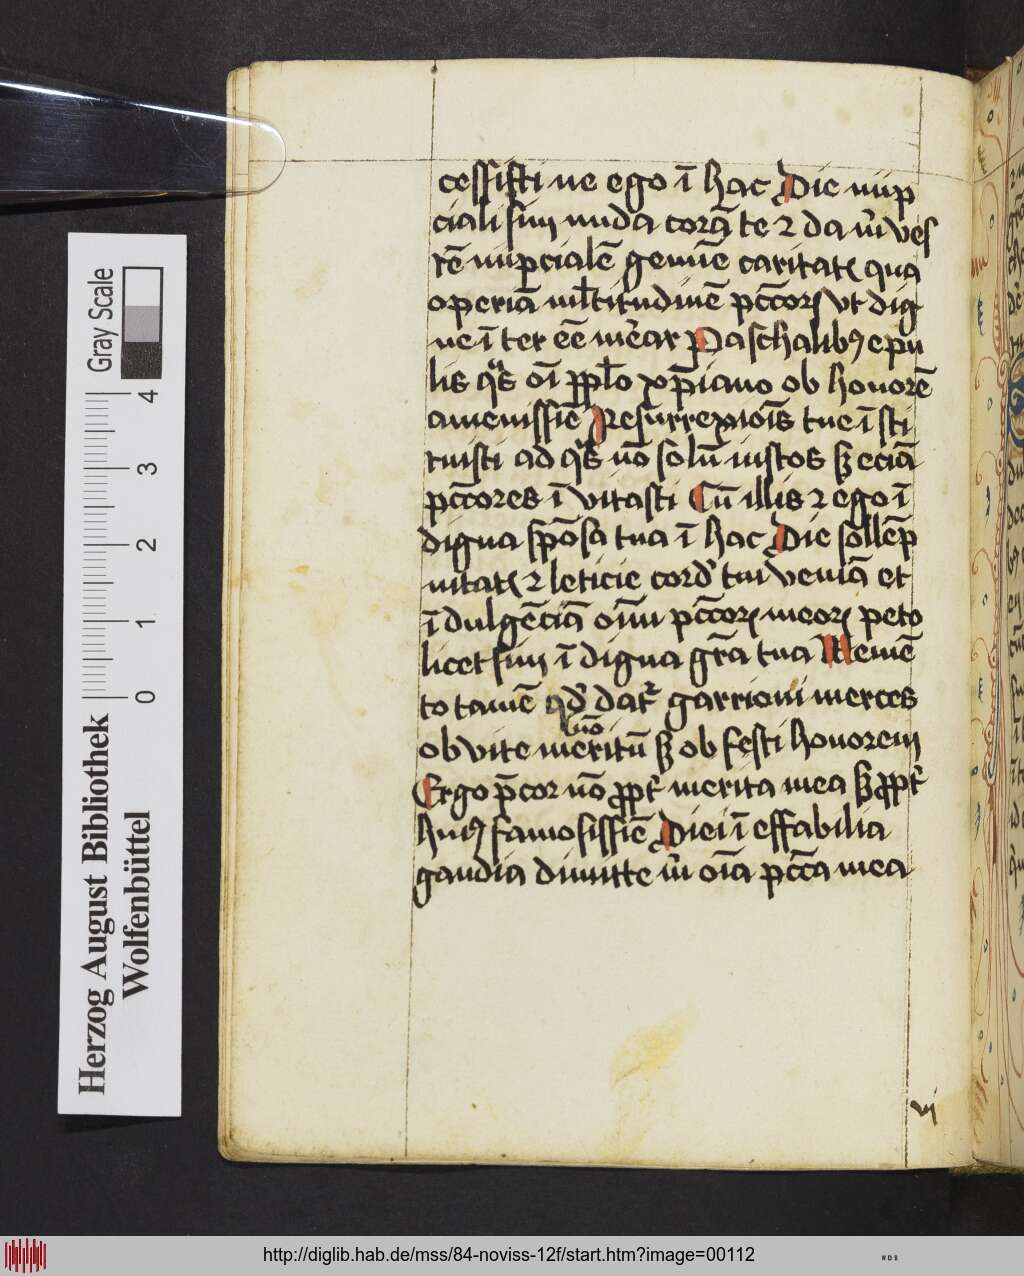 cessisti ne ego ī hac Die nup
ciali sim nuda corā te ⁊ da m̄ ves
tē nupcialē gemme caritatꝭ qua
operiā ml̄titudinē pcc̄orꝝ vt dig
ne ī ter eē mēar Paschalibꝰ epu
lis qᵃs oī ppl̄o xp̄iano ob honorē
amenissīe Resurrexiōis tue ī sti
tuisti ad qᵃs nō solū iustos sꝫ eciā
pcc̄ores ī vitasti Cū illis ⁊ ego ī
digna spōsa tua ī hac Die sollēp
nitatꝭ ⁊ leticie cord̾ tui veniā et
ī dulgēciā oīm pcc̄orꝝ meorꝝ peto
licet sim ī digna gr̄a tua Memē
to tamē qd̾ datᷣ garrioni merces
nō
ob vite meritū sꝫ ob festi honorem
Ergo p̄cor nō ꝓpt̾ merita mea sꝫ ꝓpt̾
huiꝰ famosissīe Diei ī effabilia
gaudia dimitte m̄ oīa pcc̄a mea
vi
Herzog August Bibliothek
Wolfenbüttel
Gray Scale
0 1 2 3 4
http://diglib.hab.de/mss/84-noviss-12f/start.htm?image=00112